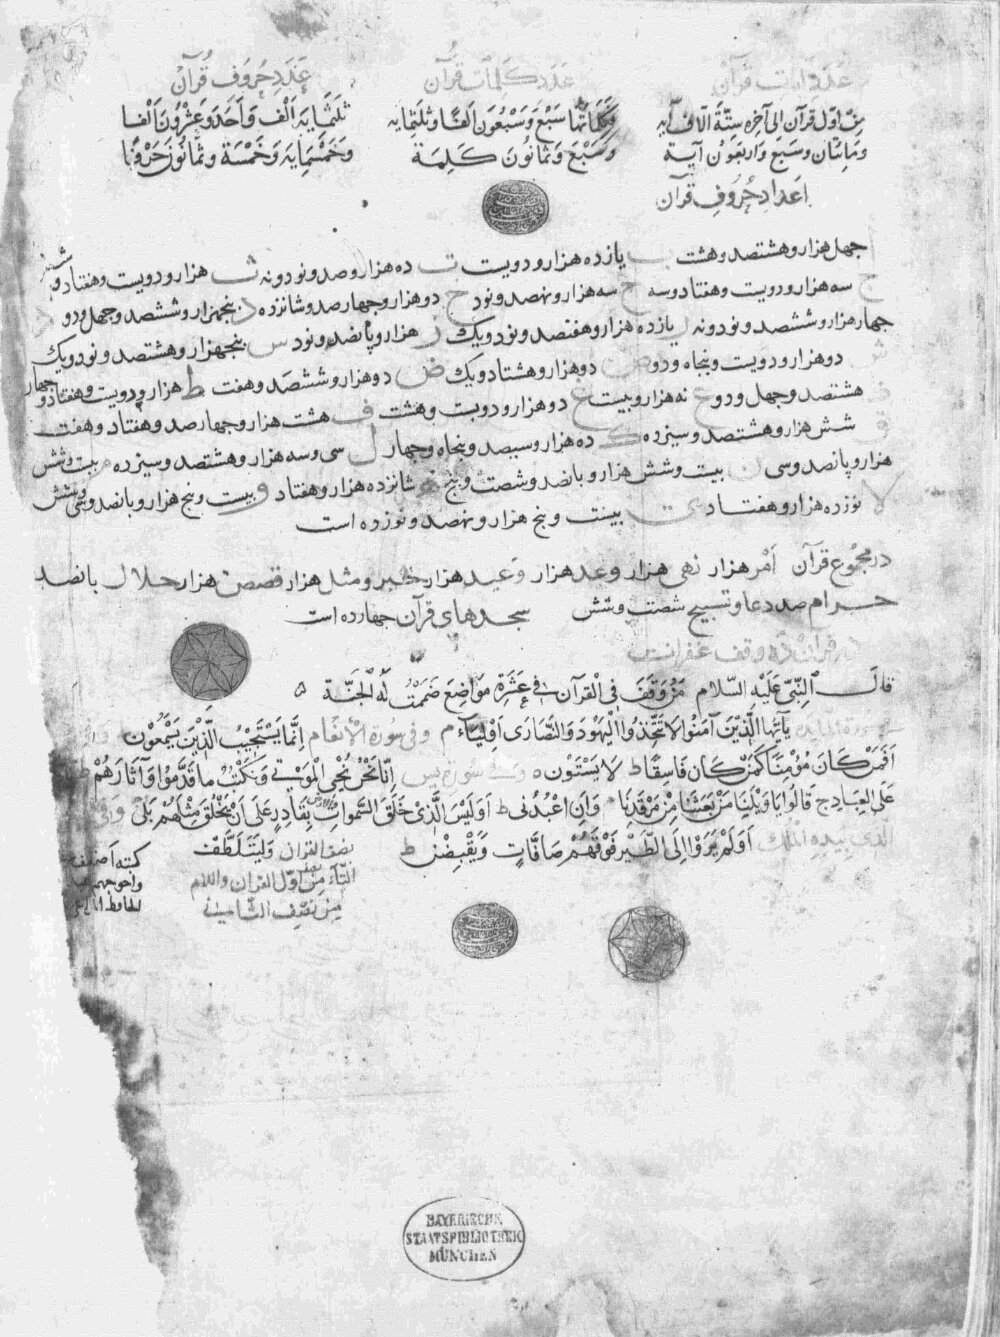 عدد آیات قرآن
من اول قرآن الی آخره ستة آلاف آیه
و مائتان و سبع و اربعون آیة
عدد کلمات قرآن
و کلماتها سبع و سبعون الفا و ثلثمایه
و سبع و ثمانون کلمة
عدد حروف قرآن
ثلثمایه الف و احد و عشرون الفا
و خمسمایه و خمسة و ثمانون حروفا
اعداد حروف قرآن
ا چهل هزار و هشتصد و هشت ب یازده هزار و دویست ت ده هزار و صد و نود و نه ث هزار و دویست و هفتاد و شش
ج سه هزار و دویست و هفتاد و سه ح سه هزار و نهصد و نود خ دو هزار و چهارصد و شانزده د پنجهزار و ششصد و چهل و دو ذ
چهار هزار و ششصد و نود و نه ر یازده هزار و هفتصد و نود و یک ز هزار و پانصد و نود س پنجهزار و هشتصد و نود و یک
ش دو هزار و دویست و پنجاه و دو ص دو هزار و هشتاد و یک ض دو هزار و ششصد و هفت ط هزار و دویست و هفتاد و چهار
ظ هشتصد و چهل و دو ع نه هزار و بیست غ دو هزار و دویست و هشت ف هشت هزار و چهارصد و هفتاد و هفت
ق شش هزار و هشتصد و سیزده ک ده هزار و سیصد و پنجاه و چهار ل سی و سه هزار و هشتصد و سیزده م بیست و شش
هزار و پانصد و سی ن بیست و شش هزار و پانصد و شصت و پنج ه شانزده هزار و هفتاد و بیست و پنج هزار و پانصد و سی و شش
لا نوزده هزار و هفتاد ی بیست و پنج هزار و نهصد و نوزده است
در مجموع قرآن امر هزار نهی هزار وعد هزار وعید هزار خبر و مثل هزار قصص هزار حلال پانصد
حرام صد دعا و تسبیح شصت و شش سجدهای قرآن چهارده است
در قرآن ده وقف غفران
قال النبی علیه السلام من وقف فی القرآن فی عشرة مواضع ضمنت له الجنة
سورة المائدة یآ ایها الذین آمنوا لا تتخذوا الیهود و النصاری اولیآء م وفی سورة الانعام انما یستجیب الذین یسمعون
افمن کان مؤمنا کمن کان فاسقا ط لا یستوون سورة یس انا نحن نحیی الموتی و نکتب ما قدموا و آثارهم ط
علی العباد ج قالوا یا ویلنا من بعثنا من مرقدنا م و ان اعبدونی ط اولیس الذی خلق السموات والارض بقادر علی ان یخلق مثلهم بلی
الذی بیده الملک اولم یروا الی الطیر فوقهم صافات و یقبضن ط
نصف القرآن ولیتلطف
التآء من اول القرآن واللام
من نصف الثانی
کتبه اضعف
واحوجهم
BAYERISCHE
STAATSBIBLIOTHEK
MÜNCHEN